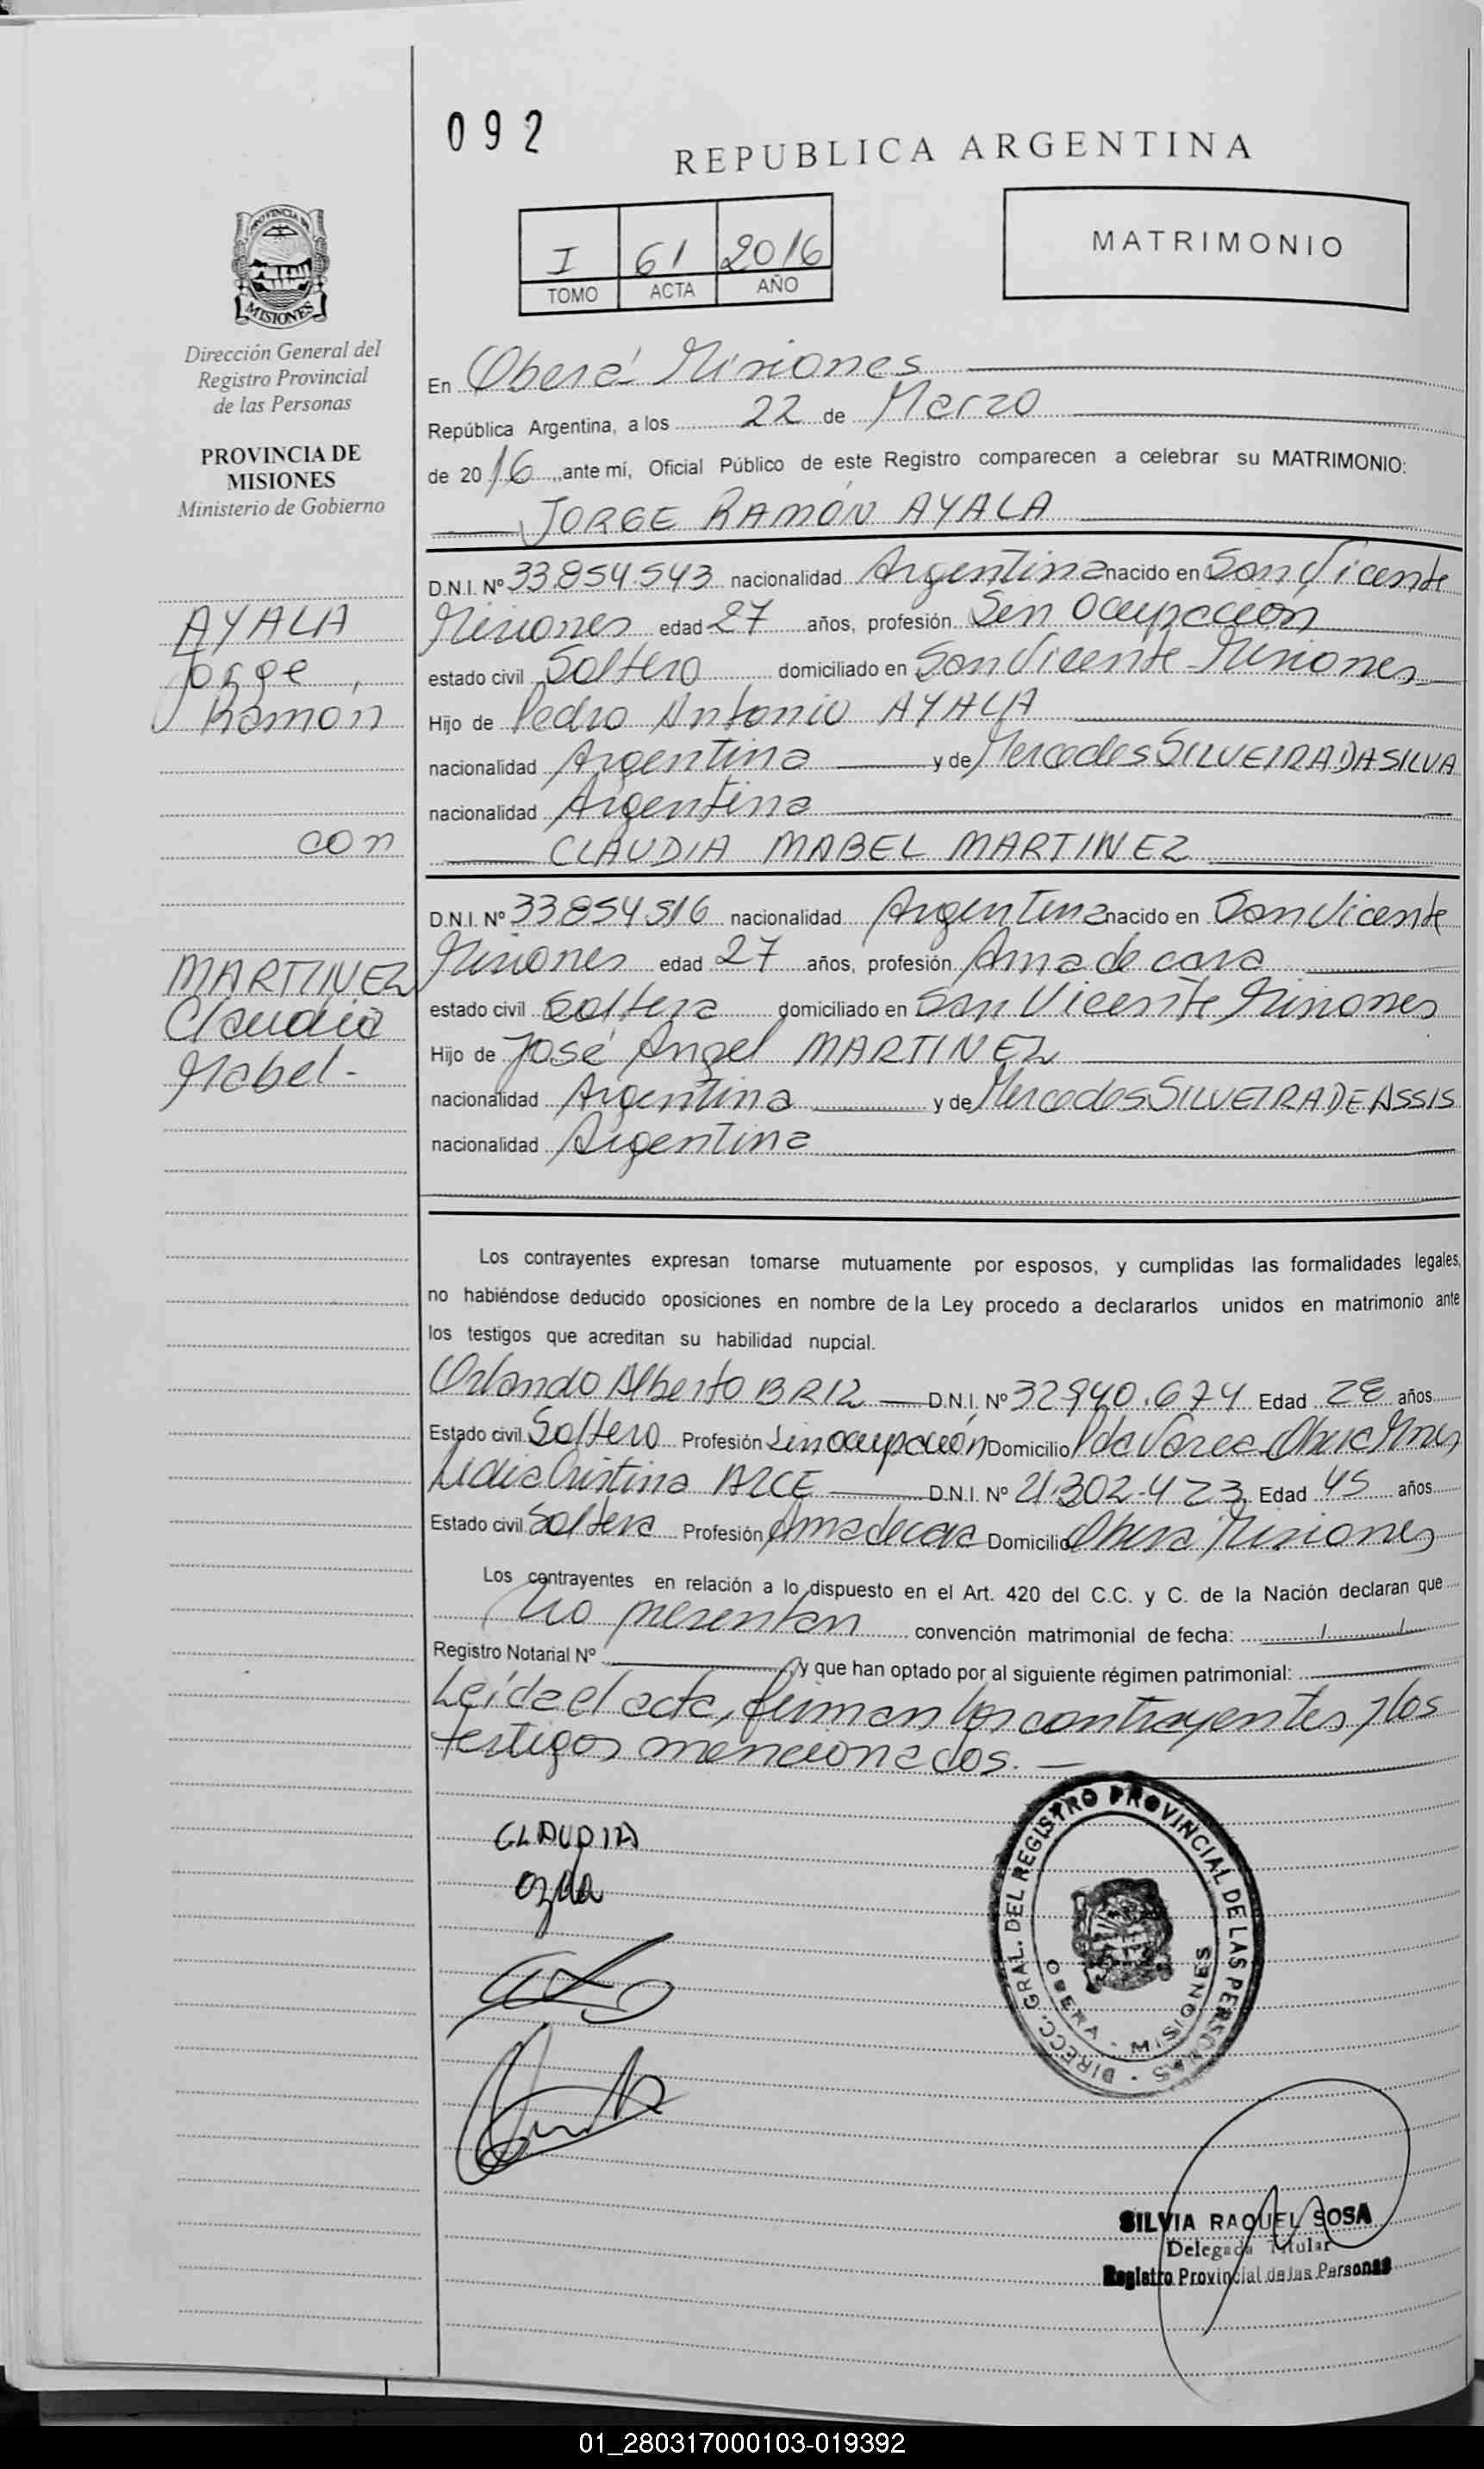 092
REPUBLICA ARGENTINA
PROVINCIA DE
MISIONES
I 61 2016
TOMO ACTA AÑO
MATRIMONIO
Dirección General del
Registro Provincial
de las Personas
PROVINCIA DE
MISIONES
Ministerio de Gobierno
AYALA
Jorge
Ramon
con
MARTINEZ
Claudia
Mabel.-
En Oberá Misiones
República Argentina, a los 22 de Marzo
de 2016, ante mí, Oficial Público de este Registro comparecen a celebrar su MATRIMONIO:
JORGE RAMÓN AYALA
D.N.I. Nº 33.854.543 nacionalidad Argentina nacido en San Vicente
Misiones edad 27 años, profesión Sin Ocupación
estado civil Soltero domiciliado en San Vicente - Misiones
Hijo de Pedro Antonio AYALA
nacionalidad Argentina y de Mercedes SILVEIRA DA SILVA
nacionalidad Argentina
CLAUDIA MABEL MARTINEZ
D.N.I. Nº 33.854.516 nacionalidad Argentina nacido en San Vicente
Misiones edad 27 años, profesión Ama de casa
estado civil Soltera domiciliado en San Vicente Misiones
Hijo de José Angel MARTINEZ
nacionalidad Argentina y de Mercedes SILVEIRA DE ASSIS
nacionalidad Argentina
Los contrayentes expresan tomarse mutuamente por esposos, y cumplidas las formalidades legales,
no habiéndose deducido oposiciones en nombre de la Ley procedo a declararlos unidos en matrimonio ante
los testigos que acreditan su habilidad nupcial.
Orlando Alberto BRIZ D.N.I. Nº 32.940.674 Edad 28 años
Estado civil Soltero Profesión Sin ocupación Domicilio
Lidia Cristina ARCE D.N.I. Nº 21.302.473 Edad 45 años
Estado civil Soltera Profesión Ama de casa Domicilio Obera Misiones
Los contrayentes en relación a lo dispuesto en el Art. 420 del C.C. y C. de la Nación declaran que
No presentan convención matrimonial de fecha: / /
Registro Notarial Nº y que han optado por al siguiente régimen patrimonial:
Leída el acta, firman los contrayentes y los
testigos mencionados.-
CLAUDIA
DIRECC. GRAL. DEL REGISTRO PROVINCIAL DE LAS PERSONAS
OBERA - MISIONES
SILVIA RAQUEL SOSA
Delegada Titular
Registro Provincial de las Personas
01_280317000103-019392